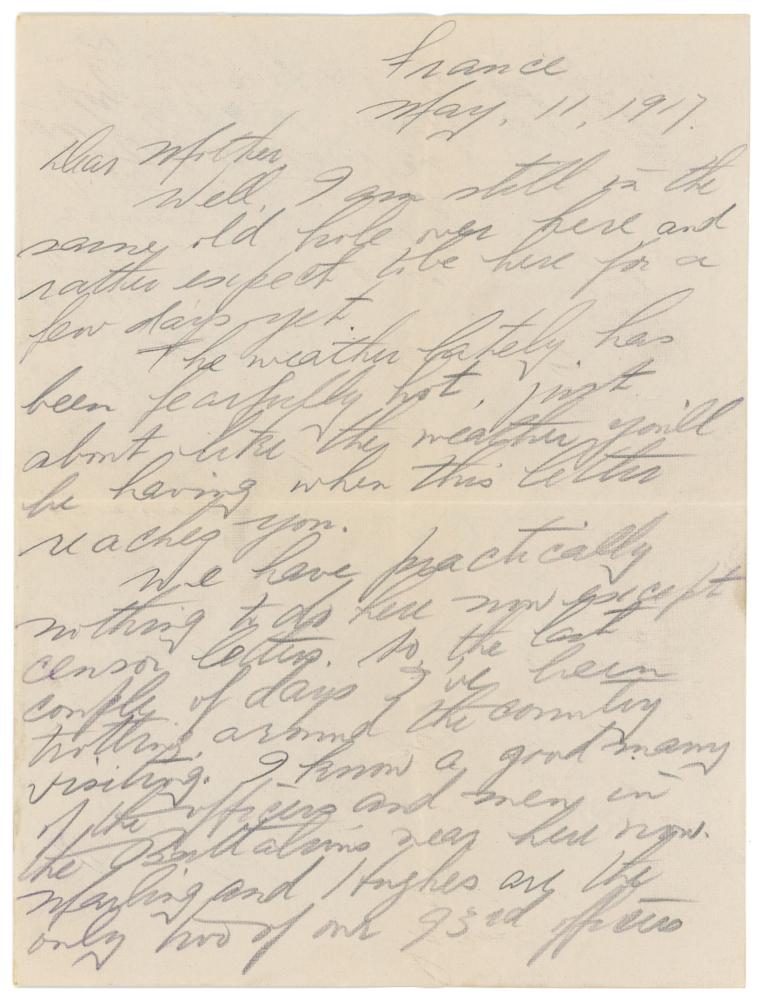 France
May, 11, 1917.
Dear Mother,
Well, I am still in the
same old hole over here and
rather expect to be here for a
few days yet.
The weather lately has
been fearfully hot, just
about like the weather you'll
be having when this letter
reaches you.
We have practically
nothing to do here now except
censor letters. So, the last
couple of days I've been
trotting around the country
visiting. I know a good many
of the officers and men in
the Battalions near here now.
Marling and Hughes are the
only two of our 93rd officers